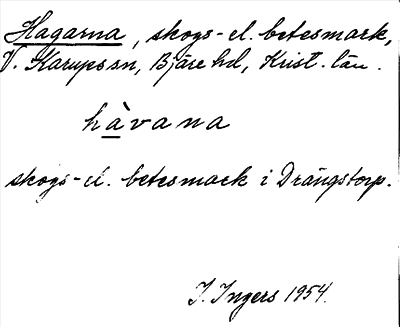 Hagarna, skogs- el. betesmark,
V. Karups sn, Bjäre hd, Krist. län.
hàvana
skogs- el. betesmark i Drängstorp.
I. Ingers 1954.